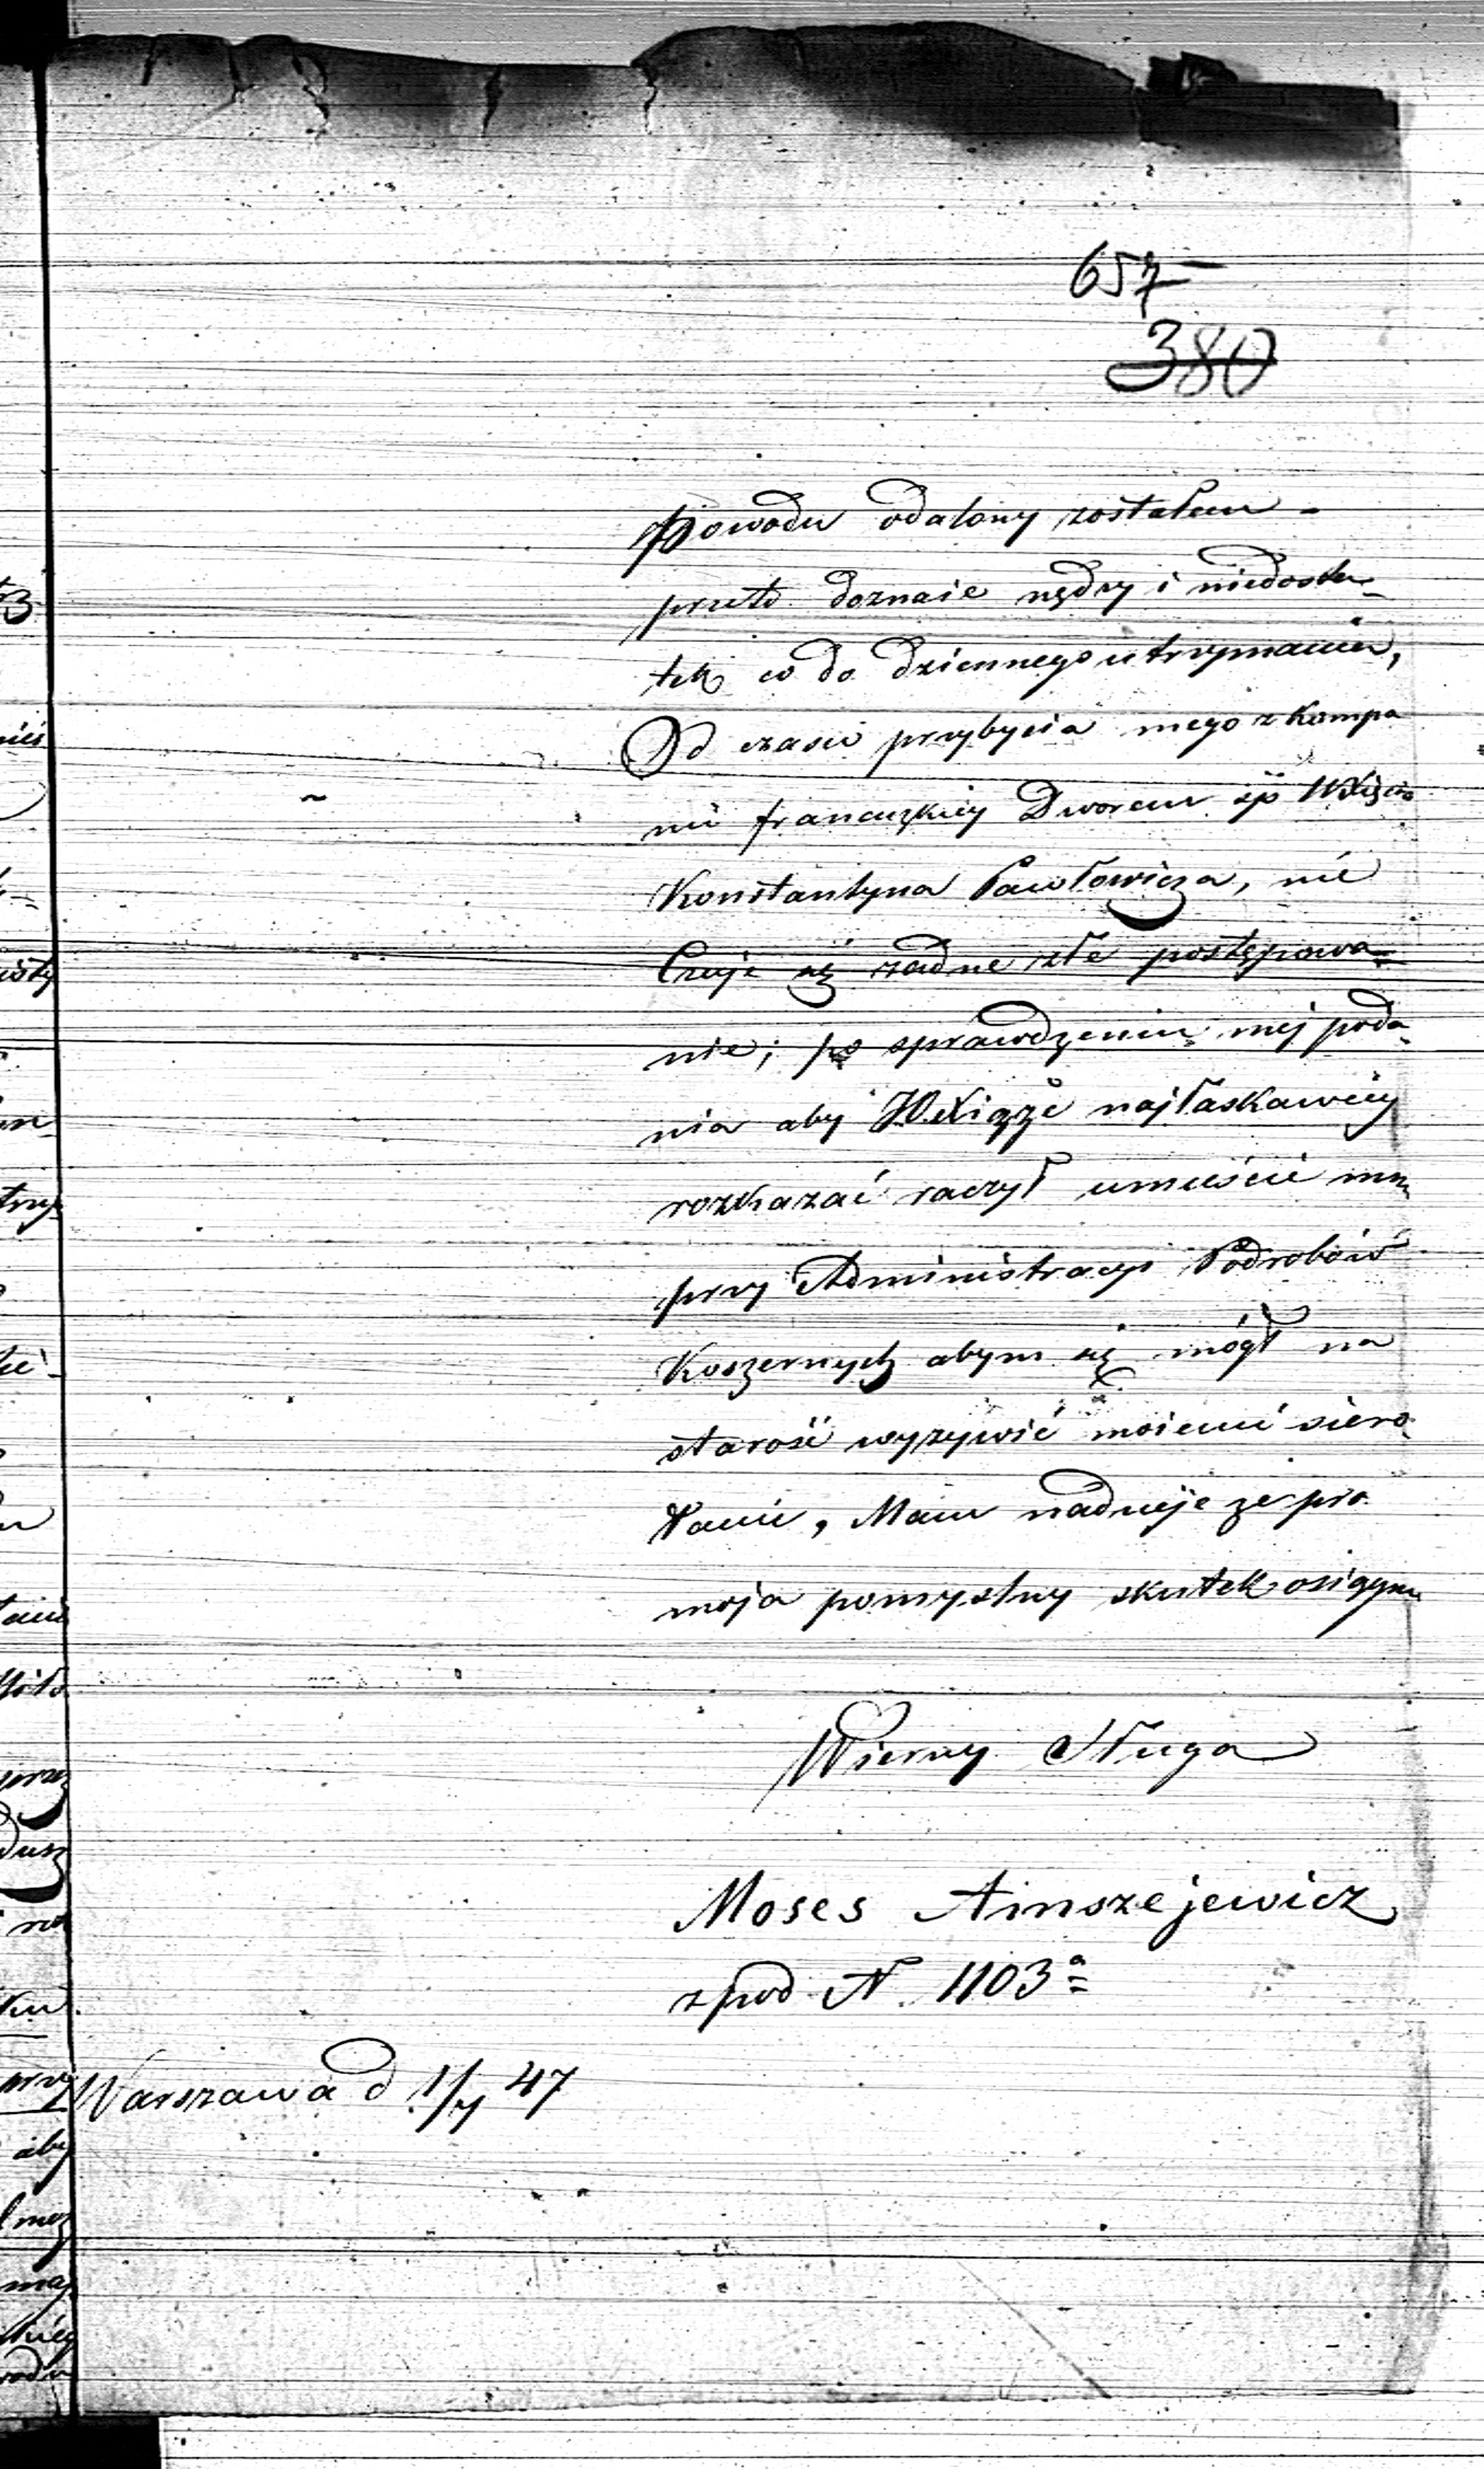 657
380
powodu odalony zostałem -
przeto doznaie nędzy i niedosta-
tek co do dziennego utrzymania,
Od czasu przybycia mego z Kampa
nii francuzkiey Dworem śp WXięcia
Konstantyna Pawłowicza, nie
Czuje się żadne złe postępowa=
nie; po sprawdzeniu mej poda-
nia aby JO. Xiąże najłaskawiey
rozkazać raczył umieścić mn
przy Administracyi Podrobów
Koszernych abym się mógł na
starość wyżywić moiemi siero
tami, Mam nadzieje że pro
moja pomyslny skutek osięgn
Wierny Sługa
Moses Ainszejewicz
zpod N. 1103ª
Warszawa d 1/7 47